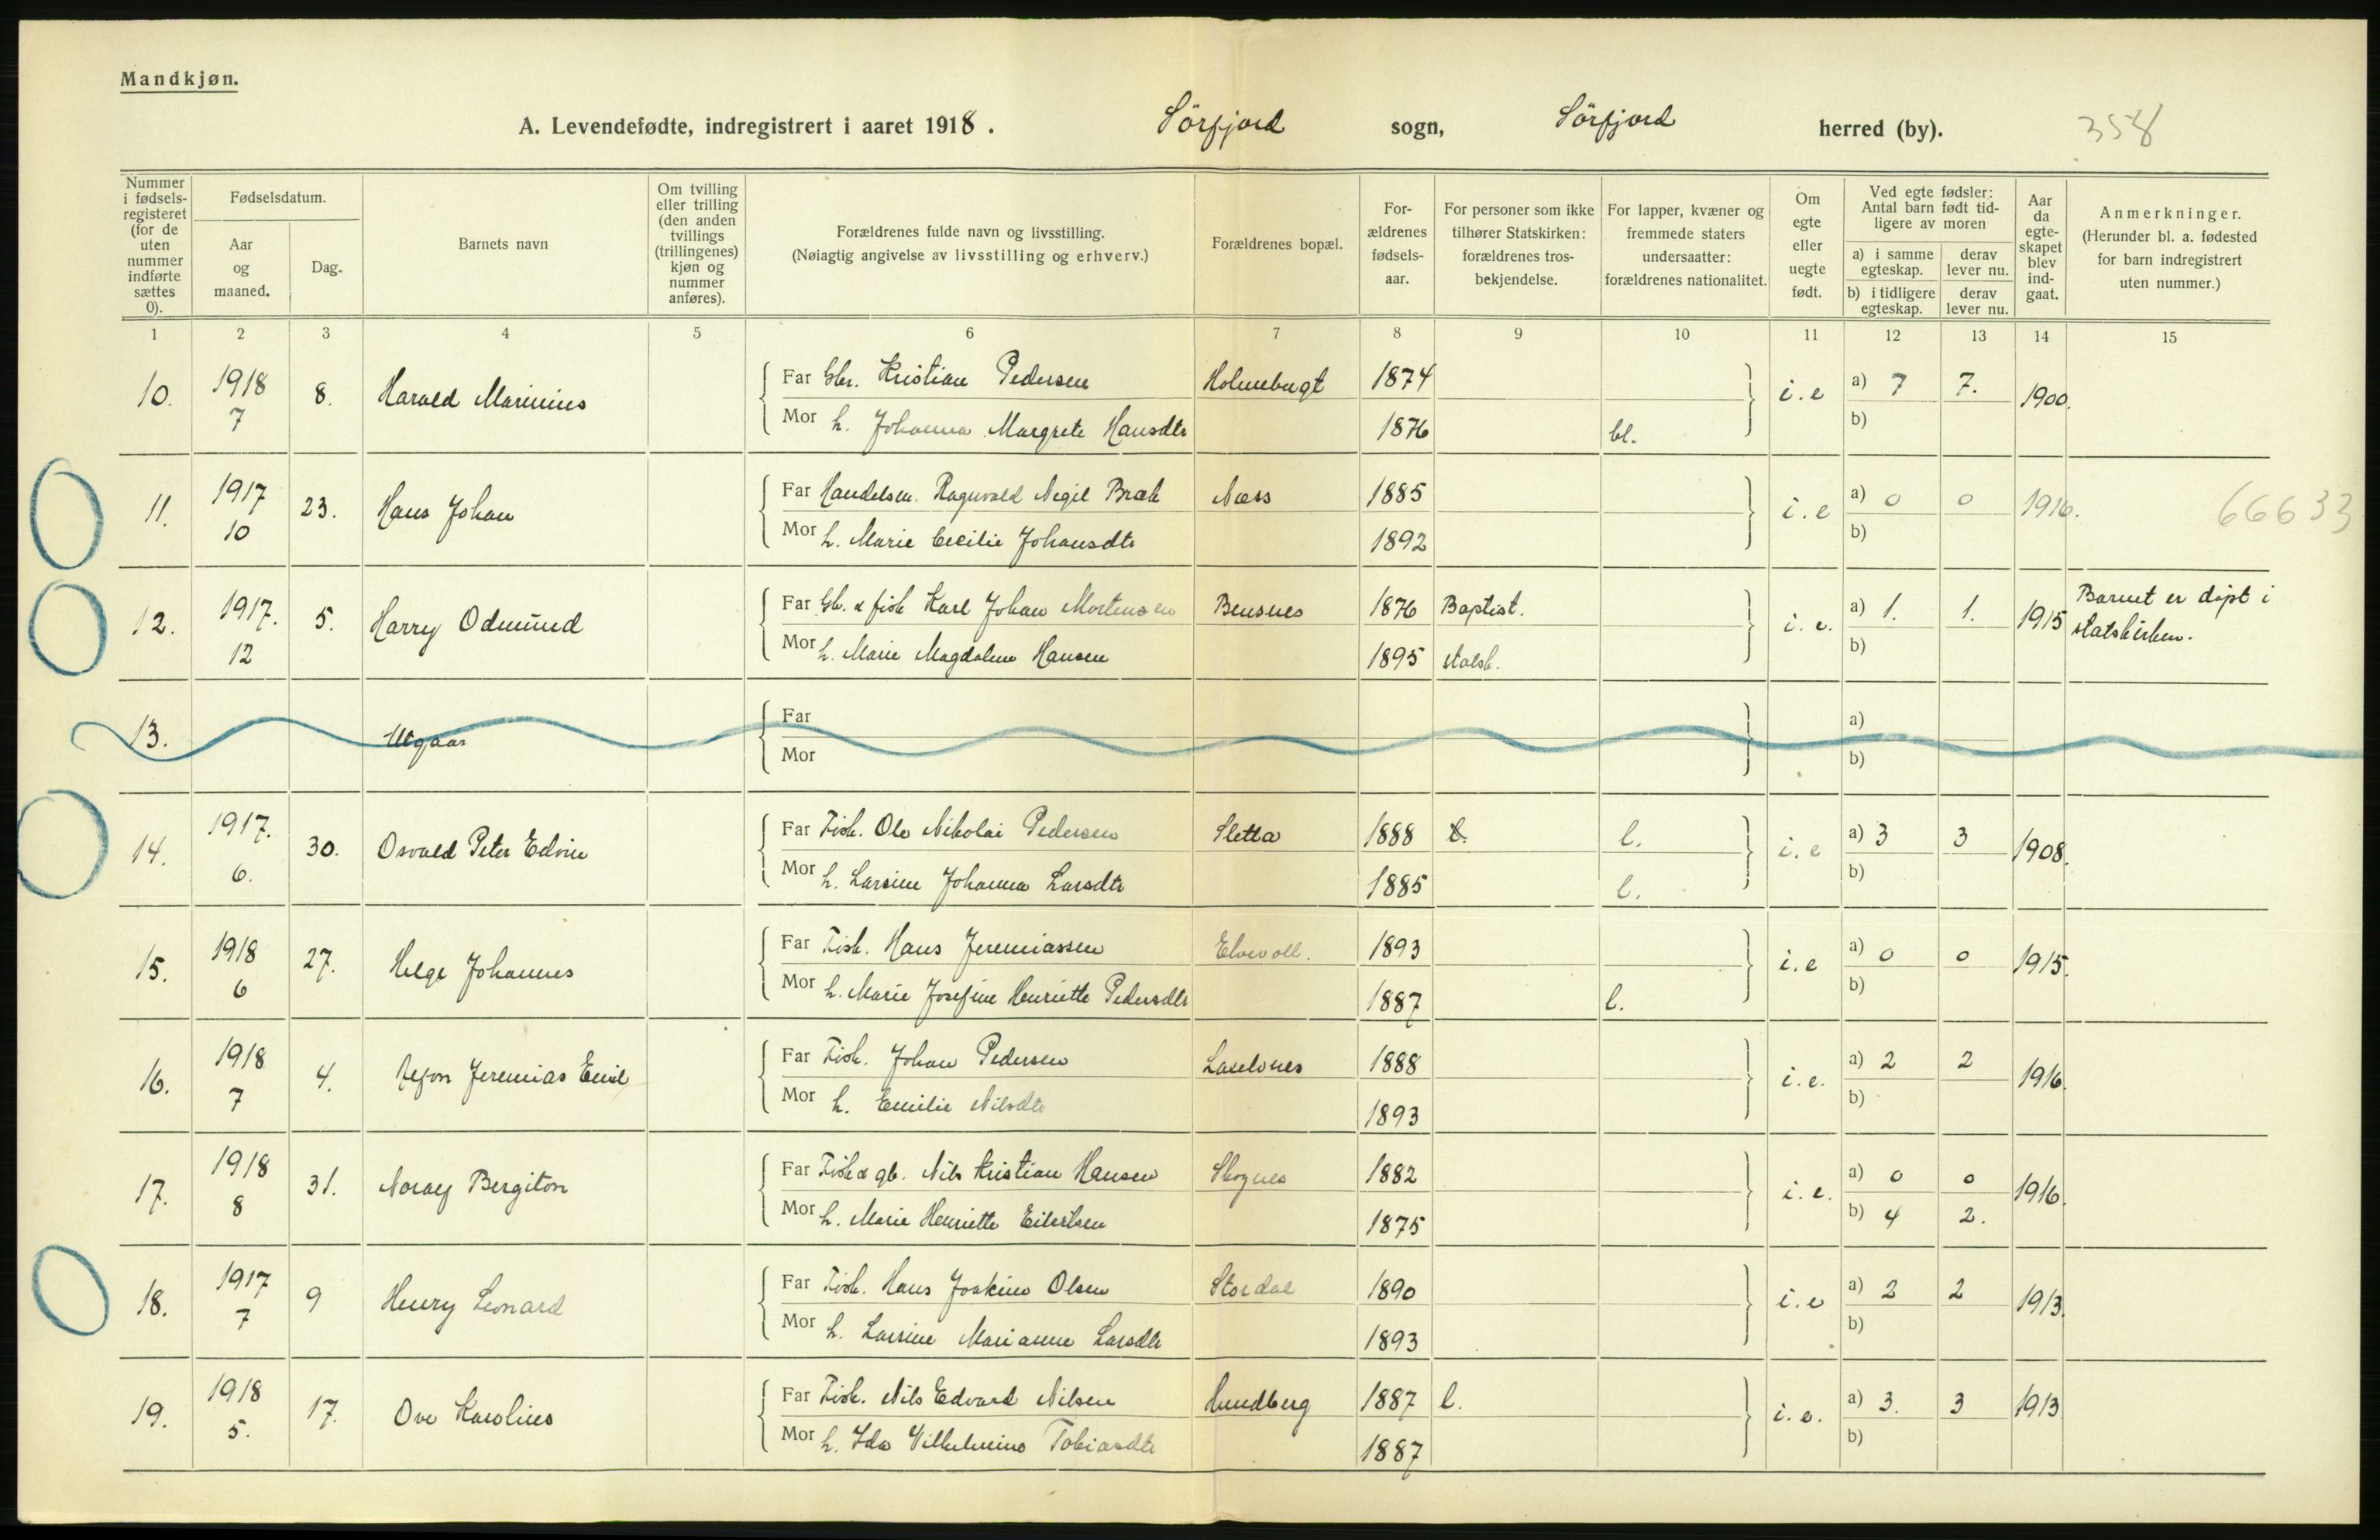 Mandkjøn.
A. Levendefødte, indregistrert i aaret 1918. Sörfjord sogn, Sörfjord herred (by). 358
Nummer i fødsels-registeret (for de uten nummer indførte sættes 0).
Fødselsdatum.
Aar og maaned.
Dag.
Barnets navn
Om tvilling eller trilling (den anden tvillings (trillingenes) kjøn og nummer anføres).
Forældrenes fulde navn og livsstilling.
(Nøiagtig angivelse av livsstilling og erhverv.)
Forældrenes bopæl.
For-ældrenes fødsels-aar.
For personer som ikke tilhører Statskirken: forældrenes tros-bekjendelse.
For lapper, kvæner og fremmede staters undersaatter: forældrenes nationalitet.
Om egte eller uegte født.
Ved egte fødsler: Antal barn født tid-ligere av moren
a) i samme egteskap.
derav lever nu.
b) i tidligere egteskap.
derav lever nu.
Aar da egte-skapet blev ind-gaat.
Anmerkninger.
(Herunder bl. a. fødested for barn indregistrert uten nummer.)
1 2 3 4 5 6 7 8 9 10 11 12 13 14 15
10. 1918 7 8. Harald Marinius
Far Gbr. Kristian Pedersen Holmebugt 1874 i.e a) 7 7. 1900.
Mor h. Johanna Margrete Hansdtr 1876 bl. b)
11. 1917 10 23. Hans Johan
Far Handelsm. Ragnvald Negil Bræk Næss 1885 i.e a) 0 0 1916. 66633
Mor h. Marie Cecilie Johansdtr 1892 b)
12. 1917. 12 5. Harry Odmund
Far Gb. & fisk Karl Johan Mortensen Bensnes 1876 Baptist. i.e. a) 1. 1. 1915 Barnet er döpt i statskirken.
Mor h. Marie Magdalene Hansen 1895 statsk. b)
13. Utgaar
Far a)
Mor b)
14. 1917. 6. 30. Osvald Peter Edvin
Far Fisk. Ole Nikolai Pedersen Sletta 1888 l. l. i.e a) 3 3 1908.
Mor h. Larsine Johanna Larsdtr 1885 l. b)
15. 1918 6 27. Helge Johannes
Far Fisk. Hans Jeremiassen Elvevoll. 1893 i.e a) 0 0 1915.
Mor h. Marie Josefine Henriette Pedersdtr 1887 l. b)
16. 1918 7 4. Jeremias Emil
Far Fisk. Johan Pedersen 1888 i.e. a) 2 2 1916.
Mor h. Emilie Nilsdtr 1893 b)
17. 1918 8 31. Bergiton
Far Fisk & gb. Nils Kristian Hansen Skognes 1882 i.e. a) 0 0 1916.
Mor h. Marie Henriette Eilertsen 1875 b) 4 2.
18. 1917 7 9 Henry Leonard
Far Fisk. Hans Joakim Olsen Stordal 1890 i.e a) 2 2 1913.
Mor h. Larsine Marianne Larsdtr 1893 b)
19. 1918 5. 17. Ove Karolius
Far Fisk. Nils Edvard Nilsen Hundberg 1887 l. i.e. a) 3. 3 1913
Mor h. Ida Vilhelmine Tobiasdtr 1887 b)